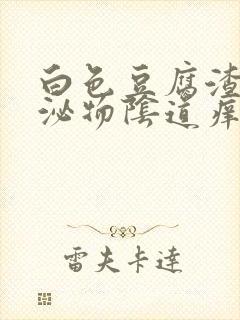 白色豆腐渣
泌物陰道痒
雷夫卡達